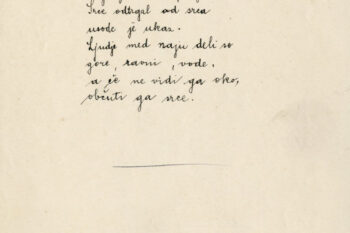 Srce odtrgal od srca
usode je ukaz.
Ljudje med naju deli so
gore, ravni, vode.
a če ne vidi ga oko,
občuti ga srce.